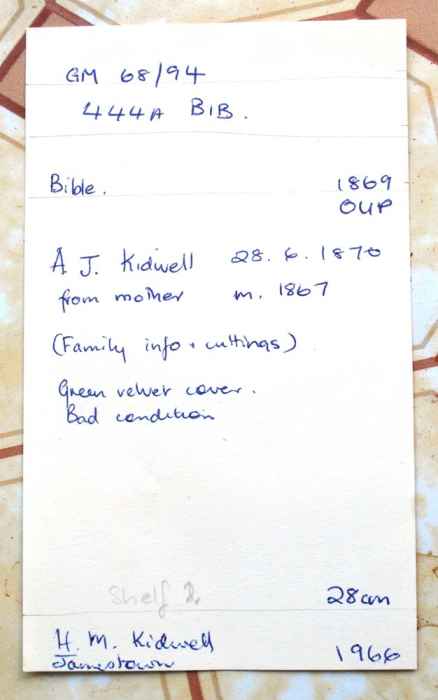 GM 68/94
444A BIB.
Bible. 1869
OUP
A J. Kidwell 28. 6. 1870
from mother m. 1867
(Family info + cuttings)
Green velvet cover.
Bad condition
Shelf 2.
28cm
H. M. Kidwell
Jamestown 1966